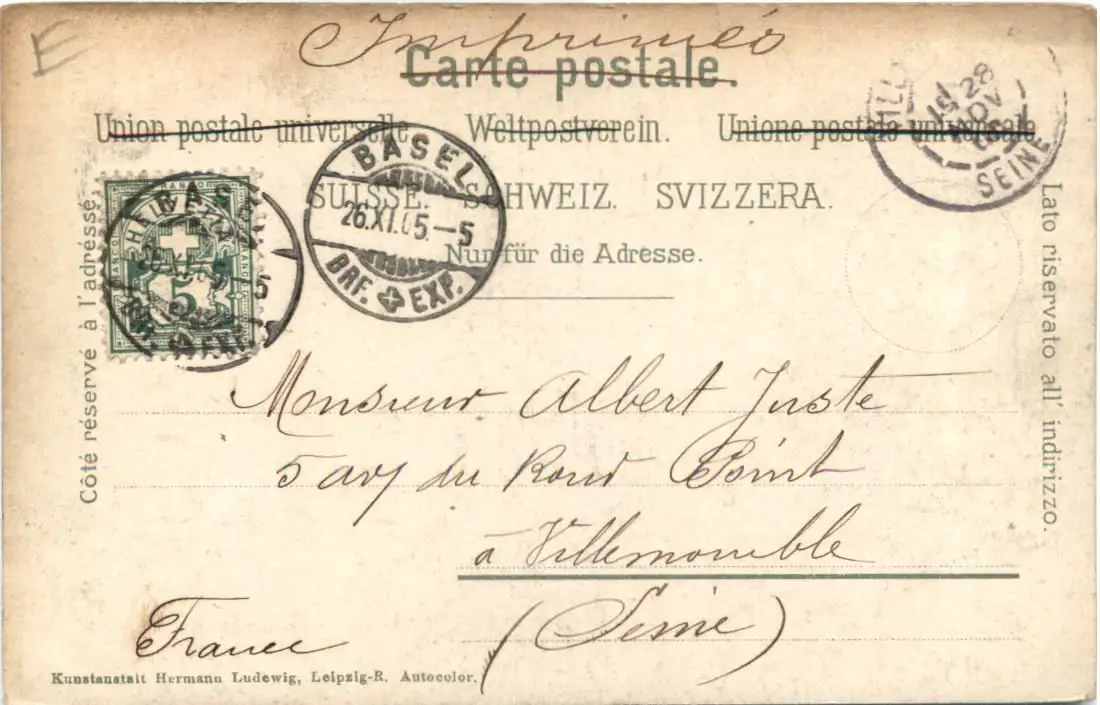 E
Imprimés
Carte postale.
Union postale universelle Weltpostverein. Unione postale universale
SUISSE. SCHWEIZ. SVIZZERA.
Nur für die Adresse.
BASEL
26.XI.05.-5
BRF. EXP.
BASEL
5
BRF. EXP.
28
NOV
05
SEINE
Côté réservé à l'adresse.
Monsieur Albert Juste
5 av du Rond Point
à Villemomble
(Seine)
France
Lato riservato all' indirizzo.
Kunstanstalt Hermann Ludewig, Leipzig-R. Autocolor.